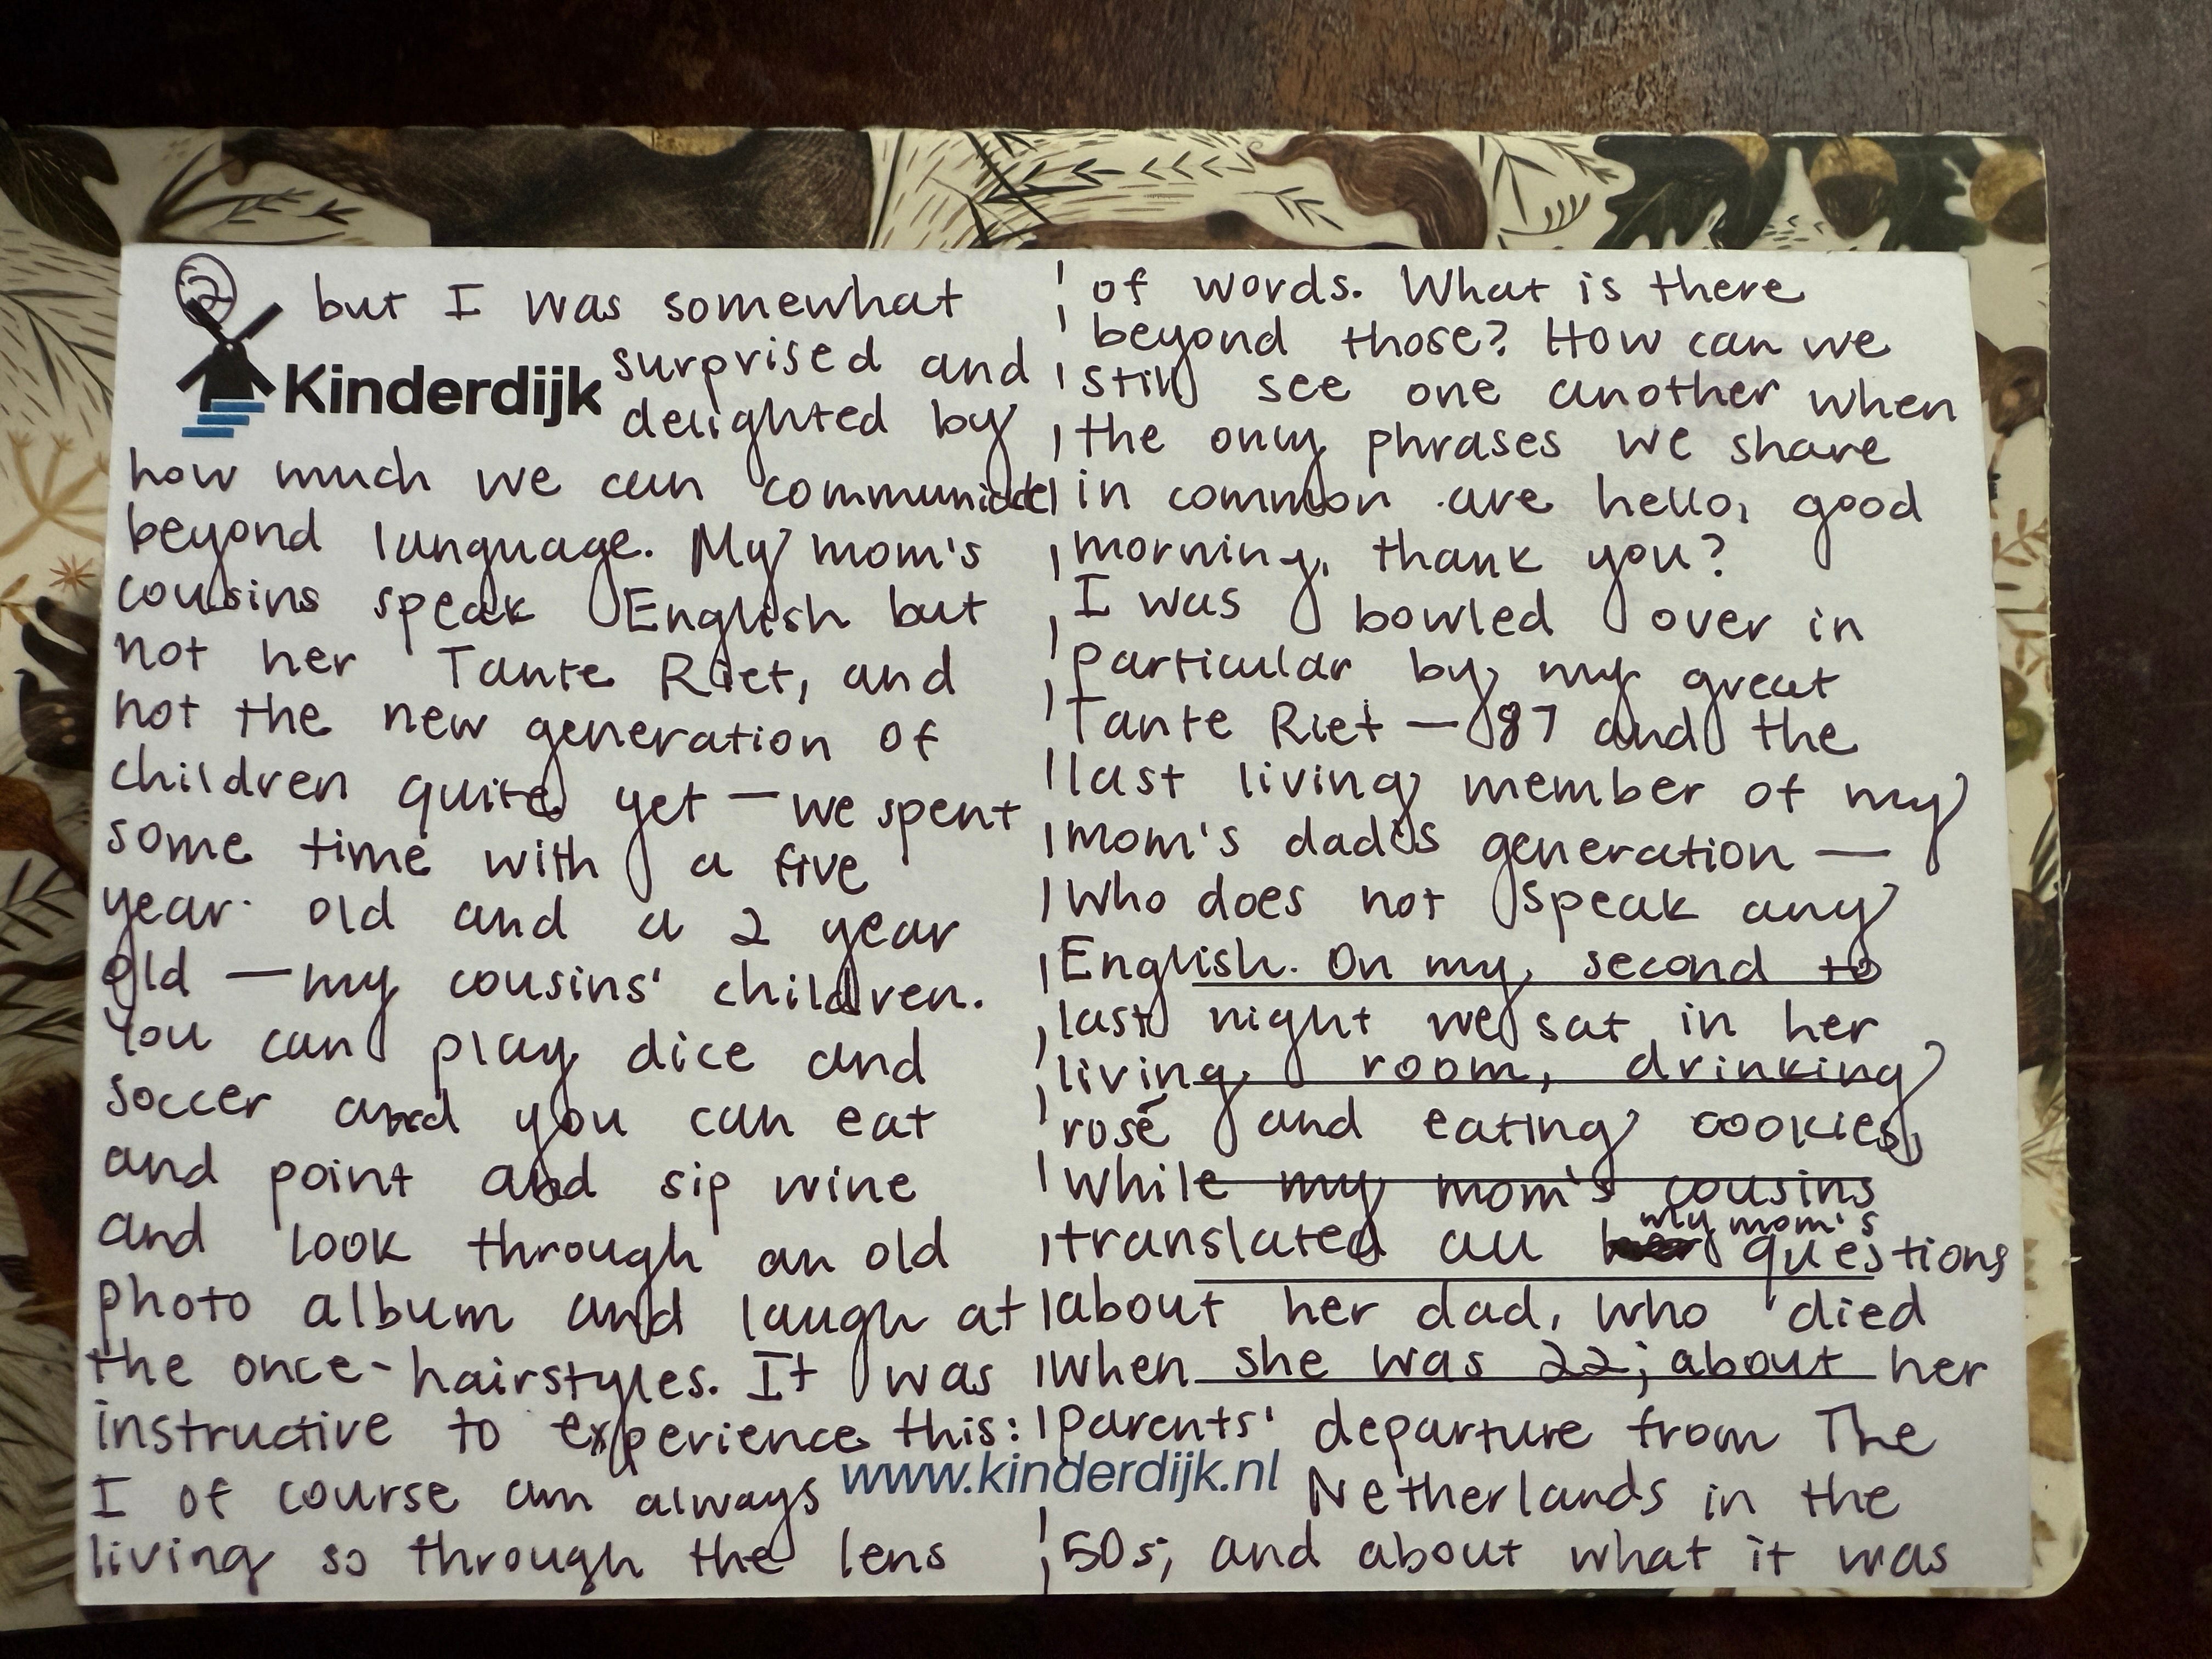 2
but I was somewhat
Kinderdijk
surprised and
delighted by
how much we can communicate
beyond language. My mom's
cousins speak English but
not her Tante Riet, and
not the new generation of
children quite yet — we spent
some time with a five
year old and a 2 year
old — my cousins' children.
You can play dice and
soccer and you can eat
and point and sip wine
and look through an old
photo album and laugh at
the once-hairstyles. It was
instructive to experience this:
I of course am always
living so through the lens
of words. What is there
beyond those? How can we
still see one another when
the only phrases we share
in common are hello, good
morning, thank you?
I was bowled over in
particular by my great
Tante Riet — 87 and the
last living member of my
mom's dad's generation —
who does not speak any
English. On my second to
last night we sat in her
living room, drinking
rosé and eating cookies,
while my mom's cousins
translated all my mom's questions
about her dad, who died
when she was 22; about her
parents' departure from The
Netherlands in the
50s; and about what it was
www.kinderdijk.nl